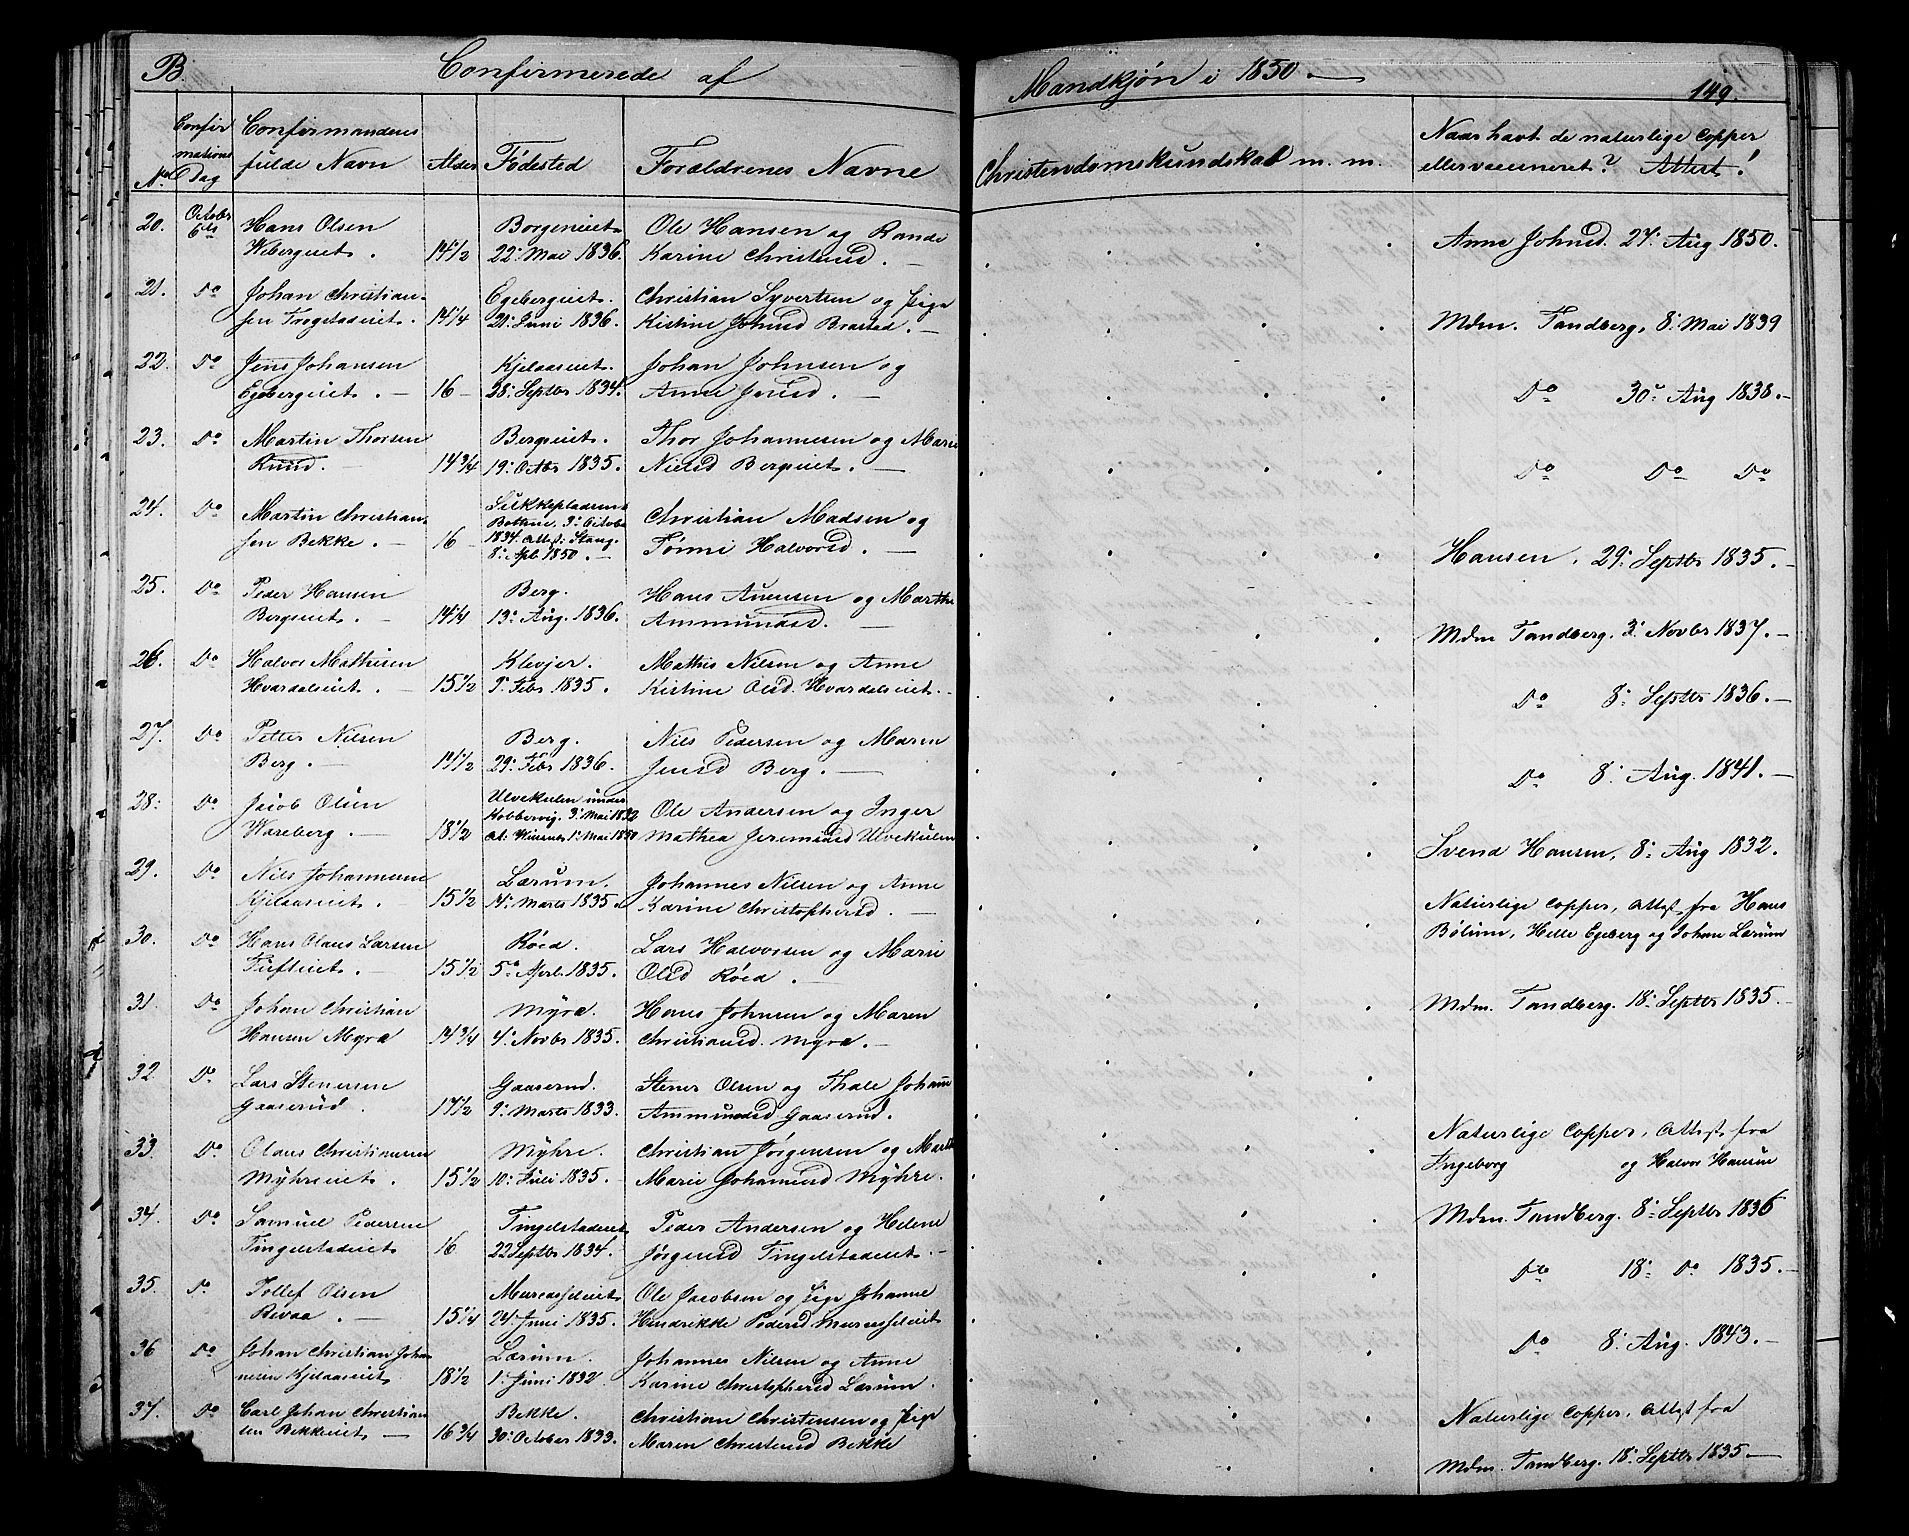 B. Confirmerede af Mandkjøn i 1850.
149.
No
Confirmations Dag
Confirmandens fulde Navn
Alder
Fødested
Forældrenes Navne
Christendomskundskab m. m.
Naar havt de naturlige Copper
eller vaccineret? Attest!
20. Octobr Hans Olsen Borgeneiet Ole Hansen og Rande
6te Wibergeiet. 14 1/2 22: Mai 1836. Karine Christensd. Anne Johnsd. 27: Aug 1850.
21. Do Johan Christian- Egebergeiet. Christian Syvertsen og Pige
sen Trøgstadeiet. 14 1/4 21: Juni 1836. Kistine Johnsd Brastad. Mdm. Tandberg, 8: Mai 1839
22. Do Jens Johansen Kjelaaseiet. Johan Johnsen og
Egebergeiet. 16 28: Septbr 1834. Anne Jensd. Do 30: Aug 1838.
23. Do Martin Thorsen Bergseiet. Thor Johannesen og Marie
Ruud. 14 3/4 19: Octbr 1835. Nielsd Bergseiet. Do Do Do
24. Do Martin Christian- 3: Octobr Christian Madsen og
sen Bekke. 16 1834. Attest: Stang. Tonni Halvorsd. Hansen, 29: Septbr 1835.
8: Apl 1850.
25. Do Peder Hansen Berg. Hans Anensen og Marthe
Bergseiet. 14 1/4 13: Aug. 1836. Ammundsd. Mdm Tandberg. 3: Novbr 1837.
26. Do Halvor Mathisen Klevjer. Mathis Nilsen og Anne
Hvardalseiet. 15 1/2 9: Febr 1835. Kistine Olsd. Hvardalseiet. Do 8: Septbr 1836.
27. Do Petter Nilsen Berg. Nils Pedersen og Maren
Berg. 14 1/2 29: Febr 1836. Jensd Berg. Do 8: Aug. 1841.
28: Do Jacob Olsen Ulvekulen under Ole Andersen og Inger
Wareberg. 18 1/2 Kobbervig. 3: Mai 1832 Mathea Jeremiasd Ulvekulen Svend Hansen, 8: Aug 1832.
1: Mai 1850
29. Do Nils Johannesen Lærum. Johannes Nilsen og Anne Naturlige Copper, Attest fra Hans
Kjelaaseiet. 15 1/2 14: Marts 1835. Karine Christophersd. Bølum, Helle Egeberg og Johan Lærum
30. Do Hans Olaus Larsen Røed. Lars Halvorsen og Marie
Tufteiet. 15 1/2 5: Aprl. 1835. Olsd Røed. Mdm. Tandberg. 18: Septbr 1835.
31. Do Johan Christian Myra. Hans Johnsen og Maren
Hansen Myra 14 3/4 4: Novbr 1835. Christiansd. Myra.
32. Do Lars Stenersen Gaaserud. Stener Olsen og Thale Johanne
Gaaserud. 17 1/2 9: Marts 1833. Ammundsd Gaaserud. Naturlige Copper, Attest fra
Ingeborg og Halvor Hansen
33. Do Olaus Christiansen Myhre. Christian Jørgensen og Marthe
Myhreeiet. 15 1/2 10: Juli 1835. Marie Johannesd Myhre. Mdm. Tandberg. 8: Septbr 1836
34. Do Samuel Pedersen Tingelstadeiet Peder Andersen og Helene
Tingelstadeiet 16 22 Septbr 1834. Jørgensd Tingelstadeiet. Dto 18: Do 1835.
35. Do Tollef Olsen Ole Jacobsen og Pige Johanne
Revaa. 15 1/4 24: Juni 1835. Hendrikke Pedersd Do 8: Aug. 1843.
36 Do Johan Christian Johan- Lærum. Johannes Nilsen og Anne
nesen Kjelaaseiet 18 1/2 1: Juni 1832. Karine Christophersd Lærum. Naturlige Copper, Attest fra
37. Do Carl Johan Christian- Bekke. Christian Christensen og Pige
sen Bekkeeiet 16 3/4 30: October 1833. Maren Christensd Bekke Mdm. Tandberg. 18: Septbr 1835